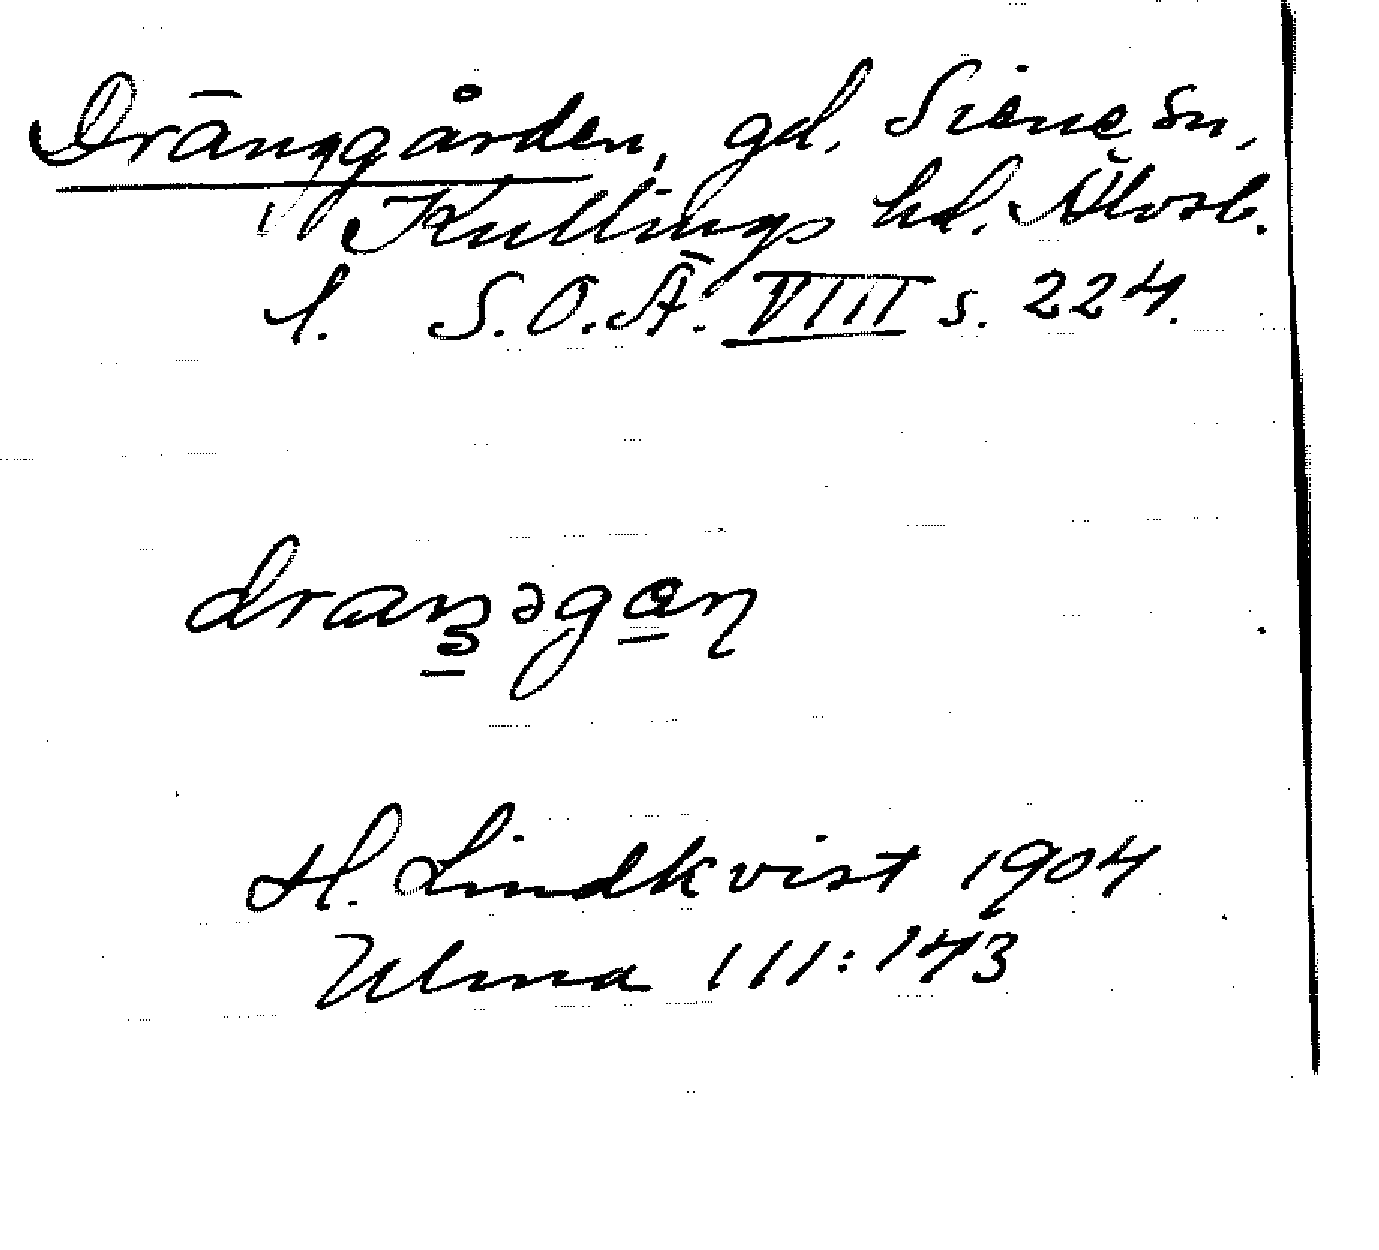 Dränggården, gd. Siene sn,
Kullings hd. Älvsb.
l. S.O.Ä. VIII s. 224.
H. Lindkvist 1904
Ulma 111:143